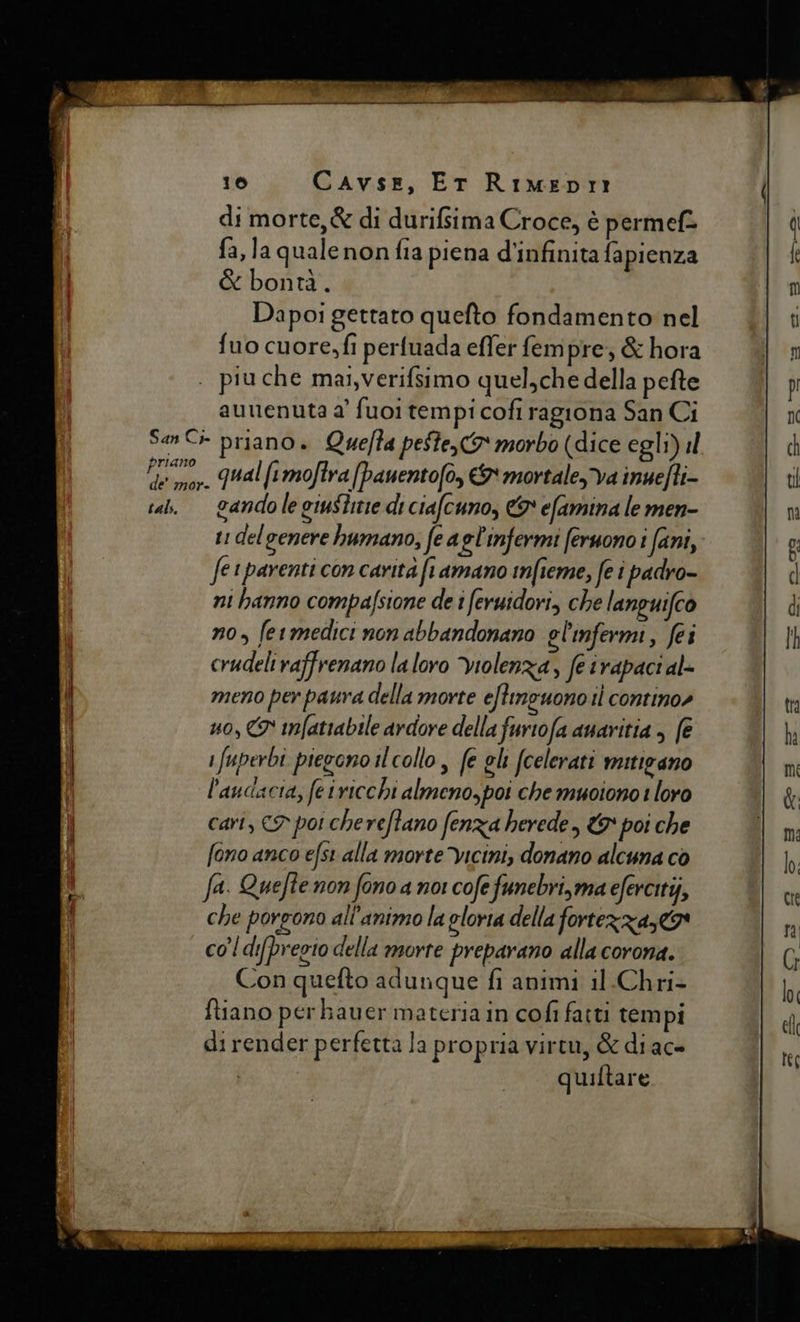 10 CAVSE, ET RIMEDII
di morte, & di durißima Croce, è permeſ-
ſa, la quale non ſia piena d'infinita ſapienza
& bontà.
Dapoi gettato queſto fondamento nel
ſuo cuore, ſi perſuada eſſer ſempre, & hora
piu che mai, verißimo quel, che della peſte
auuenuta a' ſuoi tempi coſi ragiona San Ci
San Ci- priano. Queſta peſte, & morbo (dice egli) il
priano
de' mor- qual ſi moſtra ſpauentoſo, & mortale, va inueſti-
tali. gando le giuſtitie di ciaſcuno, & eſamina le men-
ti del genere humano, ſe a gl'infermi ſeruono i ſani,
ſe i parenti con carità ſi amano inſieme, ſe i padro-
ni hanno compaſsione de i ſeruidori, che languiſco
no, ſe i medici non abbandonano gl'infermi, ſe i
crudeli raffrenano la loro violenza, ſe i rapaci al-
meno per paura della morte eſtinguono il contino-
uo, & inſatiabile ardore della furioſa auaritia, ſe
i ſuperbi piegono il collo, ſe gli ſcelerati mitigano
l'audacia, ſe i ricchi almeno, poi che muoiono i loro
cari, & poi che reſtano ſenza herede, & poi che
ſono anco eſsi alla morte vicini, donano alcuna co
ſa. Queſte non ſono a noi coſe funebri, ma eſercitij,
che porgono all'animo la gloria della fortezza, &
co'l diſpregio della morte preparano alla corona.
Con queſto adunque ſi animi il Chri-
ſtiano per hauer materia in coſi fatti tempi
di render perfetta la propria virtu, & di ac-
quiſtare